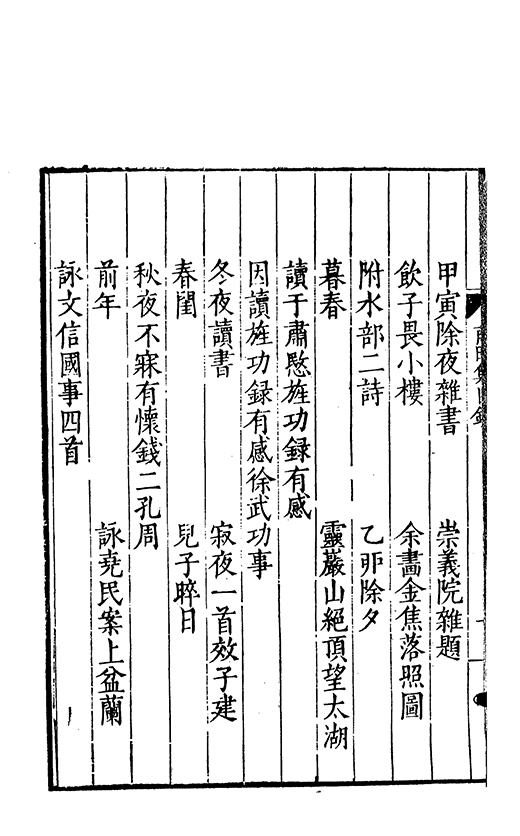 甲寅除夜雜書　崇義院雜題
飲子畏小樓　余畵金焦落照圖
附水部二詩　乙丣除夕
暮春　靈巖山絕頂望太湖
讀于肅愍旌功録有感
因讀旌功録有感徐武功事
冬夜讀書　寂夜一首效子建
春閨　兒子晬日
秋夜不寐有懷錢二孔周
前年　詠堯民案上盆蘭
詠文信國事四首